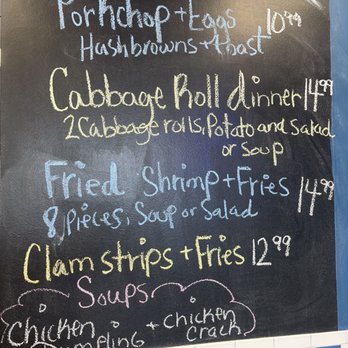 Porkchop + Eggs 10.99
Hashbrowns + toast
Cabbage Roll dinner 14.99
2 Cabbage rolls, Potato and Salad
or Soup
Fried Shrimp + Fries 14.99
8 Pieces, Soup or Salad
Clam strips + Fries 12.99
Soups
Chicken + Chicken
Dumpling Crack